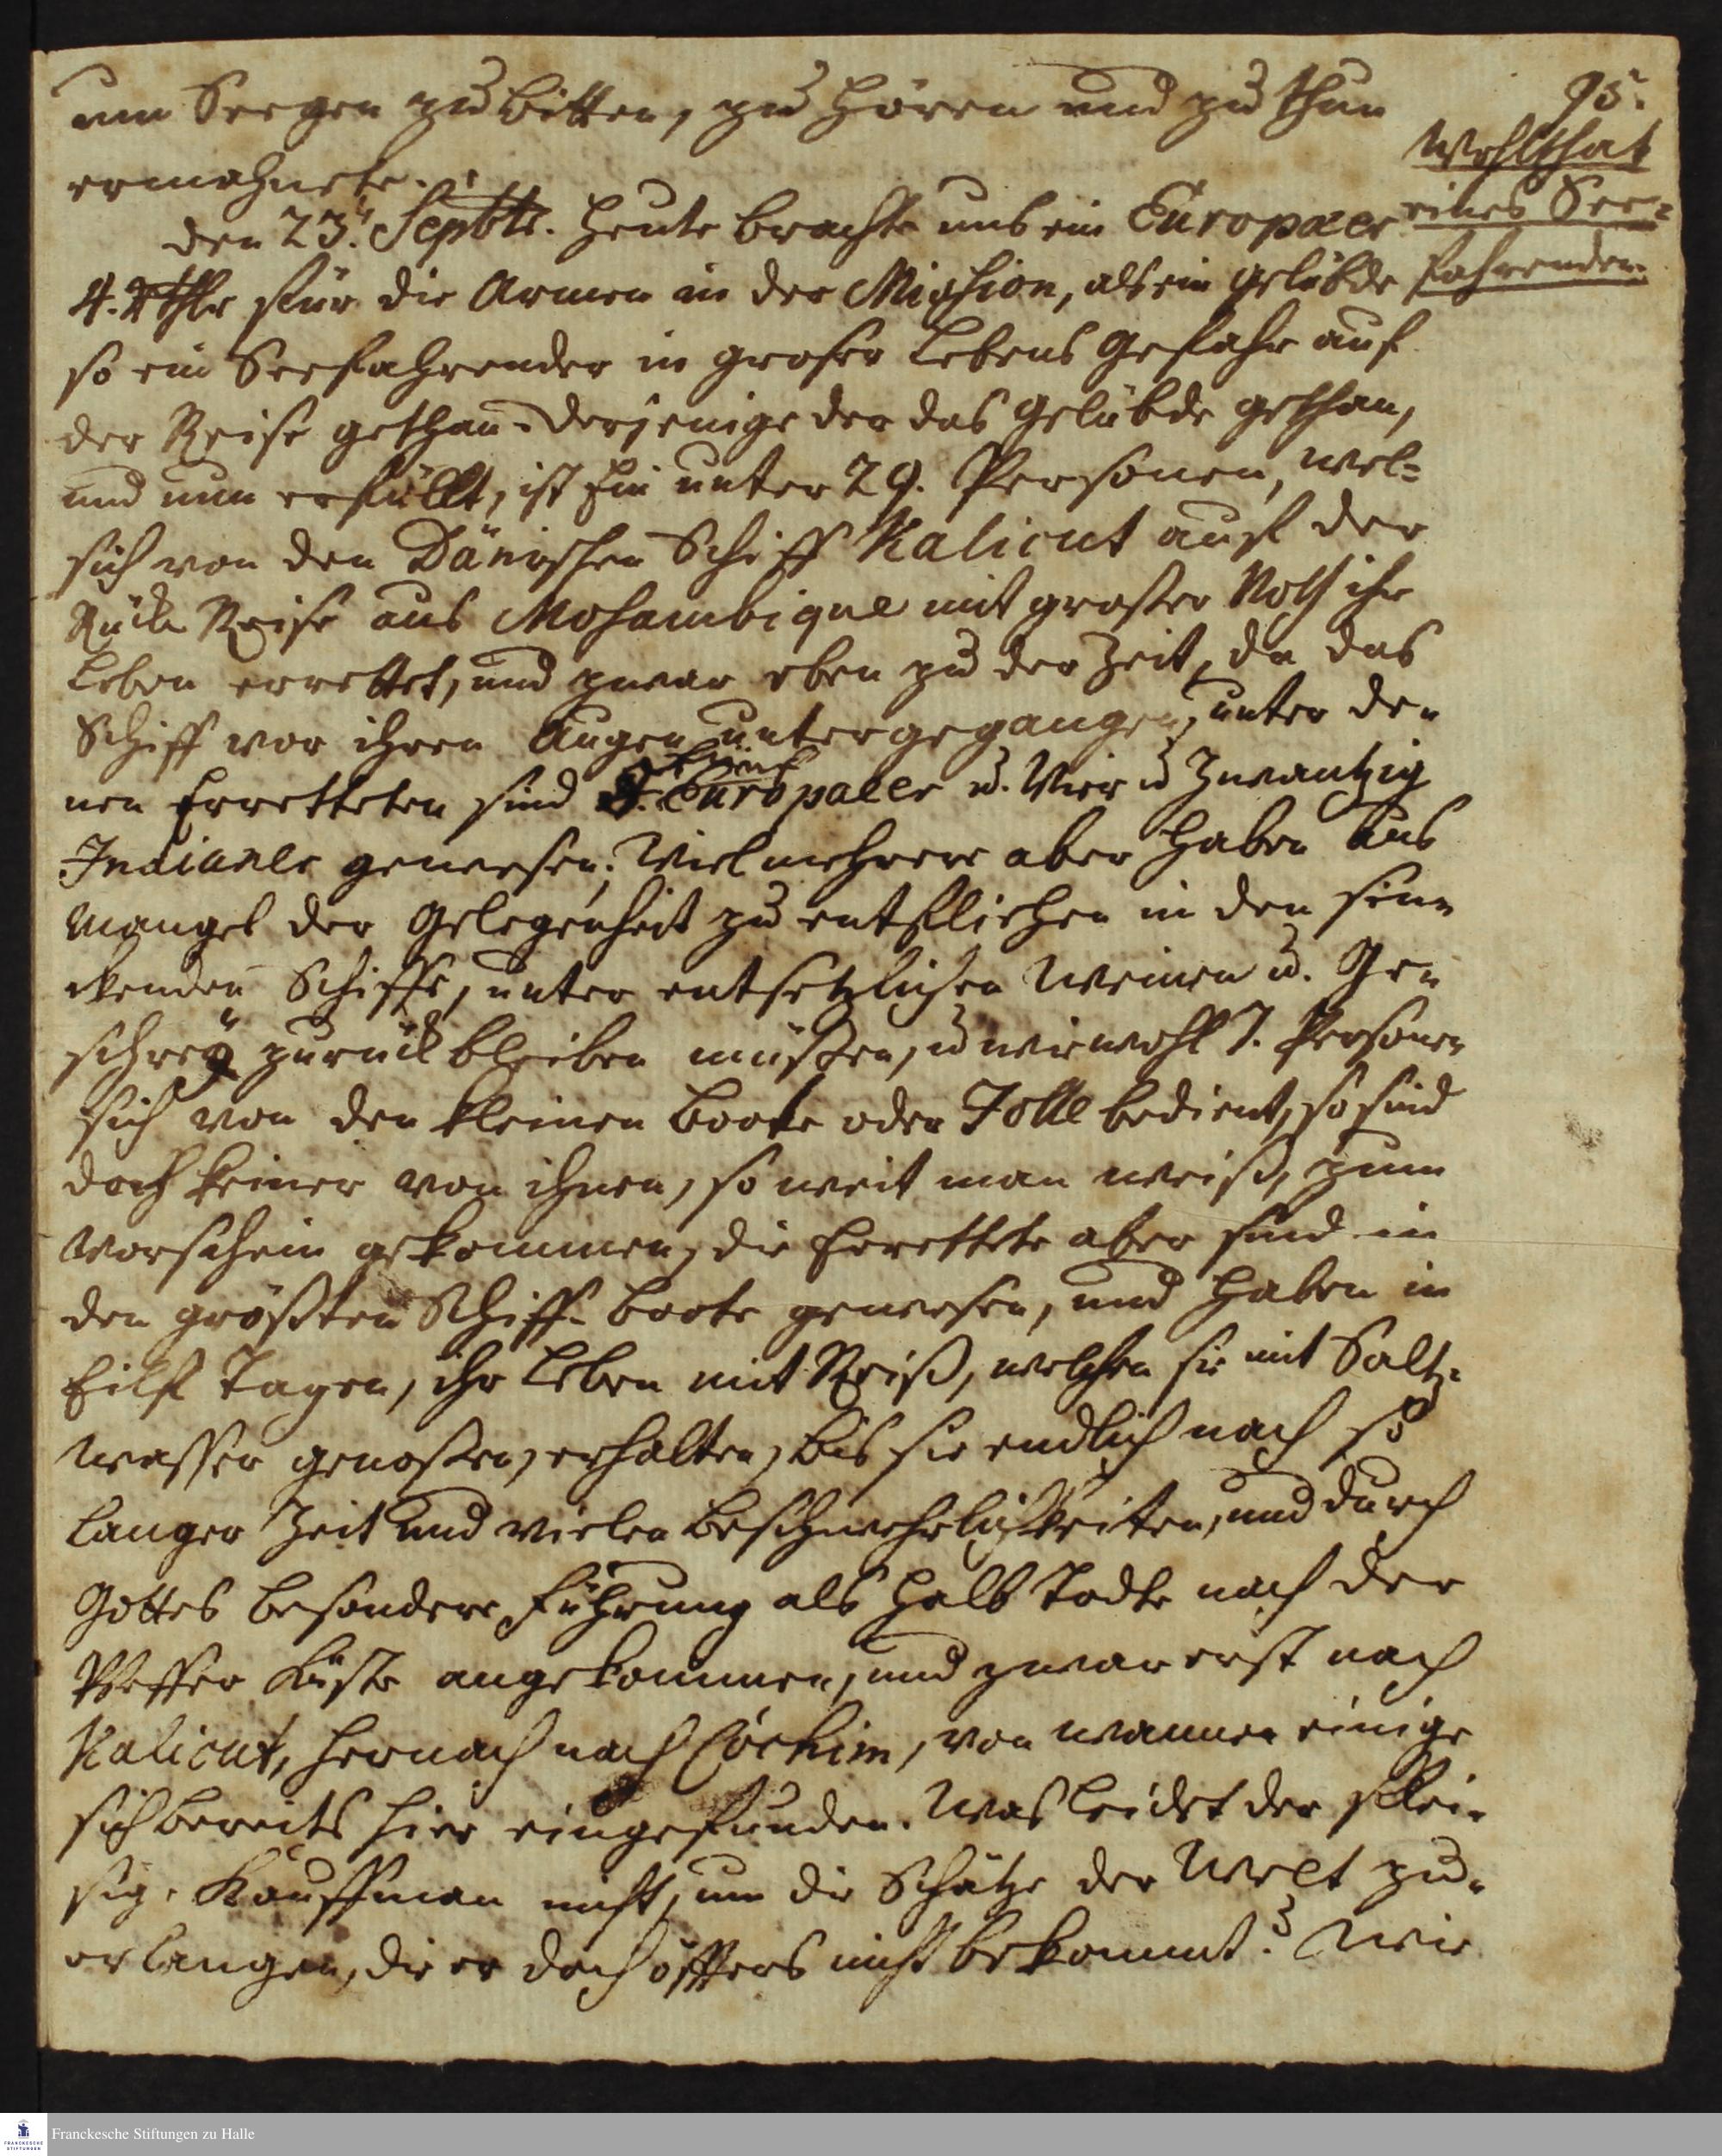 95.
um Seegen zu bitten, zu hören und zu thun
ermahnete.
Wohlthat
eines See=
fahrenden.
den 23.t Septbr. Heute brachte uns ein Europaeer
4. Rthlr für die Armen in der Mission, als ein Gelübde
so ein Seefahrender in groser Lebens Gefahr auf
der Reise gethan. Derjenige der das Gelübde gethan,
und nun erfüllt, ist Ein unter 29. Personen, wel=
sich von den Dänischen Schiff Kalicut auf der
Rück Reise aus Mosambique mit großer Noth ihr
Leben errettet, und zwar eben zu der Zeit, da das
Schiff vor ihren Augen untergegangen, unter de=
nen Erretteten sind fünf Europaeer u. Vier u Zwantzig
Indianer gewesen; Viel mehrere aber haben aus
Mangel der Gelegenheit zu entfliehen in den sin=
ckenden Schiffe, unter entsetzlichen Weinen u. Ge=
schrey zurück bleiben müßen, u wiewohl 7. Personen
sich von den kleinen Boote oder Jolle bedient, so sind
doch keiner von ihnen, so weit man weiß, zum
Vorschein gekommen, die Errettete aber sind in
den größten Schiff=Boote gewesen, und haben in
Eilf Tagen, ihr Leben mit Reiß, welchen sie mit Saltz=
wasser genoßen, erhalten, bis sie endlich nach so
langer Zeit und vielen Beschwehrlichkeiten, und durch
Gottes besondere Führung als halb Todte nach der
Pfeffer Küste angekommen, und zwar erst nach
Kalicut, hernach nach Cochim, von wannen einige
sich bereits hier eingefunden. Was leidet der flei=
sige Kauffman nicht, um die Schätze der Welt zu=
erlangen, die er doch öffters nicht bekommt? Wie
Franckesche Stiftungen zu Halle